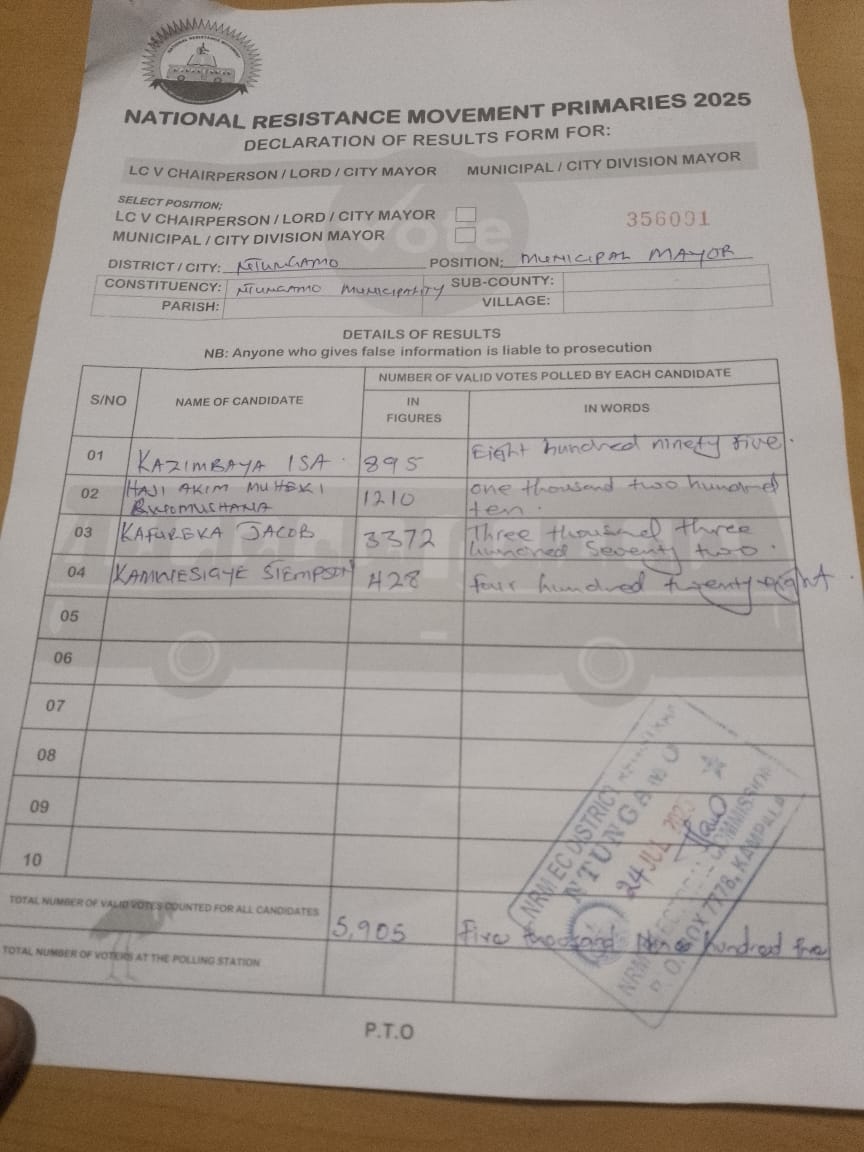 NATIONAL RESISTANCE MOVEMENT
NATIONAL RESISTANCE MOVEMENT PRIMARIES 2025
DECLARATION OF RESULTS FORM FOR:
LC V CHAIRPERSON / LORD / CITY MAYOR MUNICIPAL / CITY DIVISION MAYOR
SELECT POSITION;
LC V CHAIRPERSON / LORD / CITY MAYOR
MUNICIPAL / CITY DIVISION MAYOR
356091
Vote
DISTRICT / CITY: NTUNGAMO POSITION: MUNICIPAL MAYOR
CONSTITUENCY: NTUNGAMO MUNICIPALITY SUB-COUNTY:
PARISH: VILLAGE:
DETAILS OF RESULTS
NB: Anyone who gives false information is liable to prosecution
S/NO NAME OF CANDIDATE NUMBER OF VALID VOTES POLLED BY EACH CANDIDATE
IN FIGURES IN WORDS
01 KAZIMBAYA ISA. 895 Eight hundred ninety five.
02 HAJI AKIM MUHEKI BWOMUSHANA 1210 one thousand two hundred ten.
03 KAFUREKA JACOB 3372 Three thousand three hundred seventy two.
04 KAMWESIGYE SIEMPSON 428 four hundred twenty eight.
05
06
07
08
09
10
TOTAL NUMBER OF VALID VOTES COUNTED FOR ALL CANDIDATES 5,905 Five thousand nine hundred five
TOTAL NUMBER OF VOTERS AT THE POLLING STATION
NRM EC DISTRICT
NTUNGAMO
24 JUL 2025
NRM ELECTORAL COMMISSION
P. O. BOX 7778, KAMPALA
P.T.O